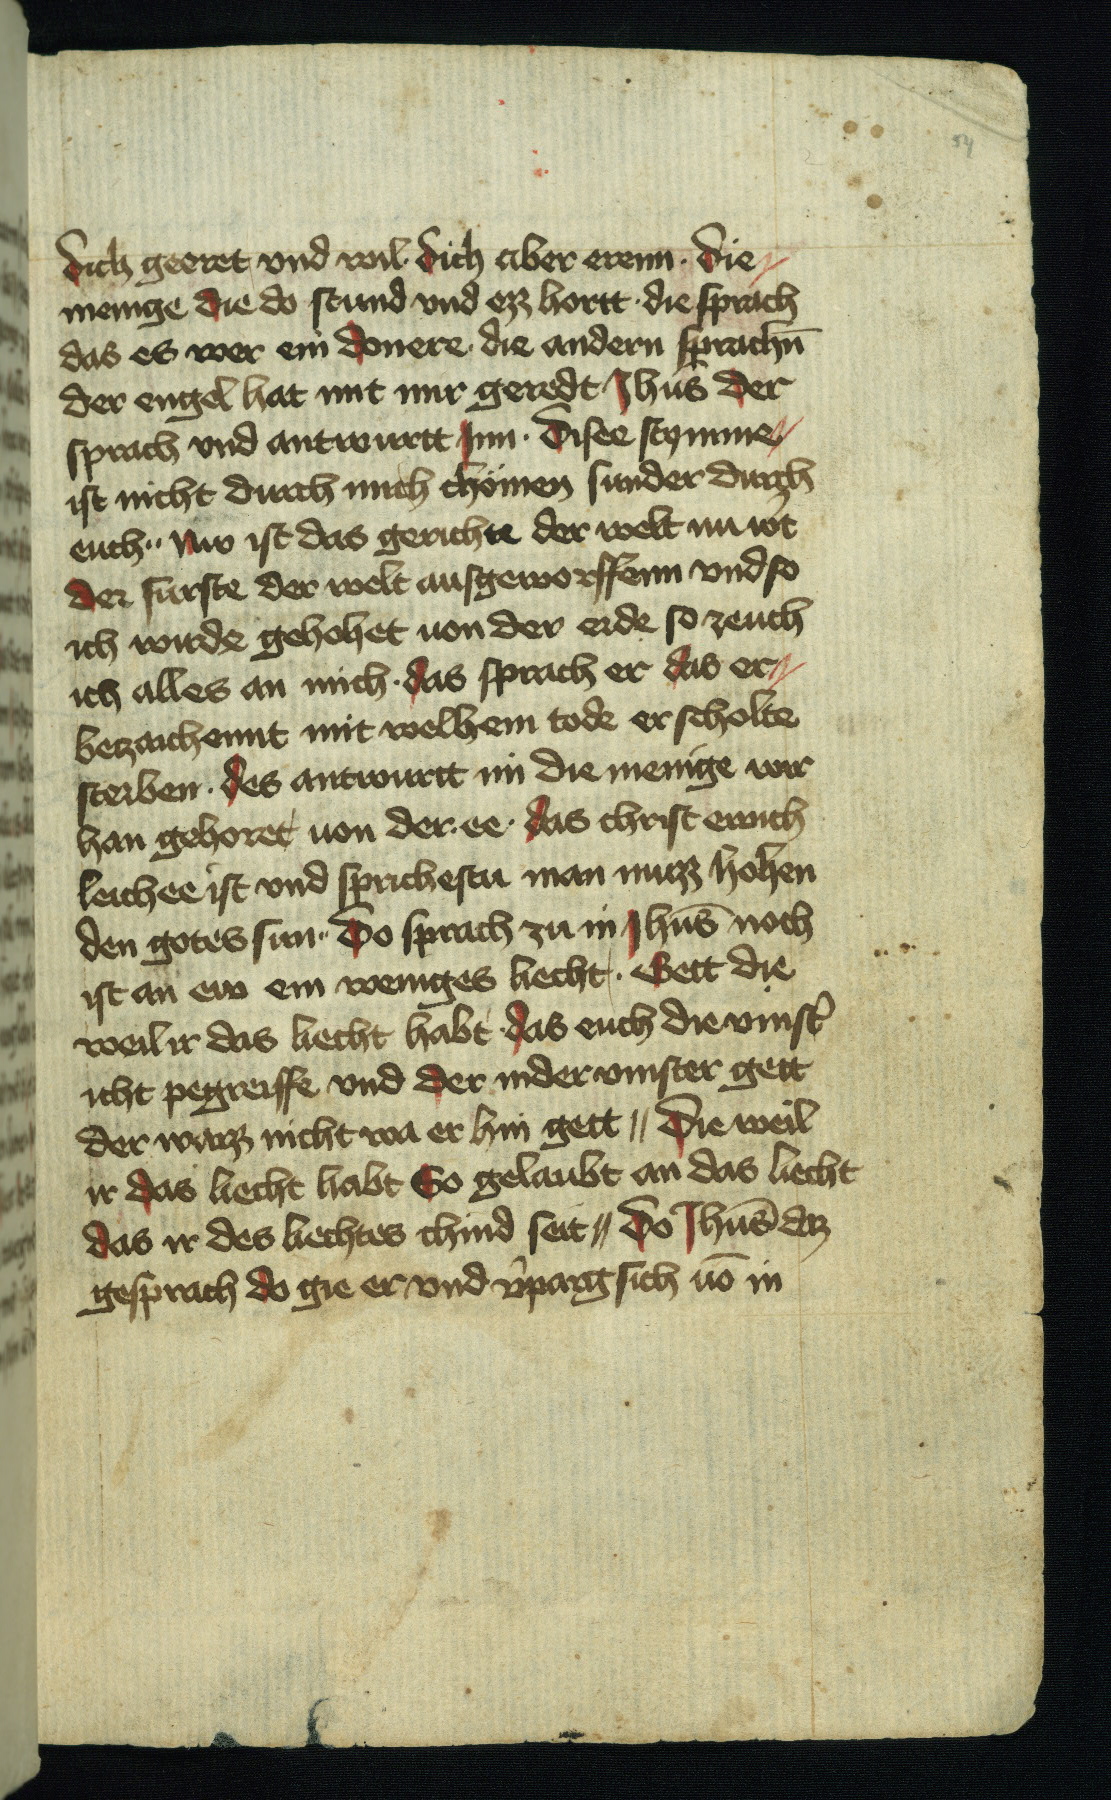 54
dich geeret vnd wil dich aber erenn · Die
menige die do stund vnd ez hortt · die sprach
das es wer ein donere · die andern sprachn̄
der engel hat mit mir geredt Jhus̄ der
sprach vnd antwurtt Jnn · Disee stymme
ist nicht durch mich chömen sunder durch
euch · Nw ist das gerichte der welt nu wt
der furste der welt ausgeworffenn vnd so
ich wirde gehohet uon der erde so zeuch
ich alles an mich · das sprach er das er
betzaichennt mit welhem tode er scholte
sterben · des antwurtt im die menige wir
han gehoret uon der · ee · das christ ewich
leichee ist vnd sprichestu man muz hohen
den gotes sun · Do sprach zu in Jhus̄ noch
ist an ew ein weniges liecht · Gett die
weil ir das liecht habt · das euch die vinst͛
icht pegreiffe vnd der inder vinster gett
der waiz nicht wa er hin gett // Die weil
ir das liecht habt So gelaubt an das liecht
das ir des liechtes chind seit // Do Jhus̄ daz
gesprach do gie er vnd v͛parg sich uō in